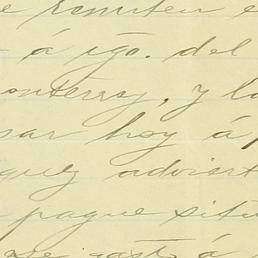 e remiten e
á igo. del
onterrey, y lo
sar hoy á p
quez adviert
pague situ
gast á